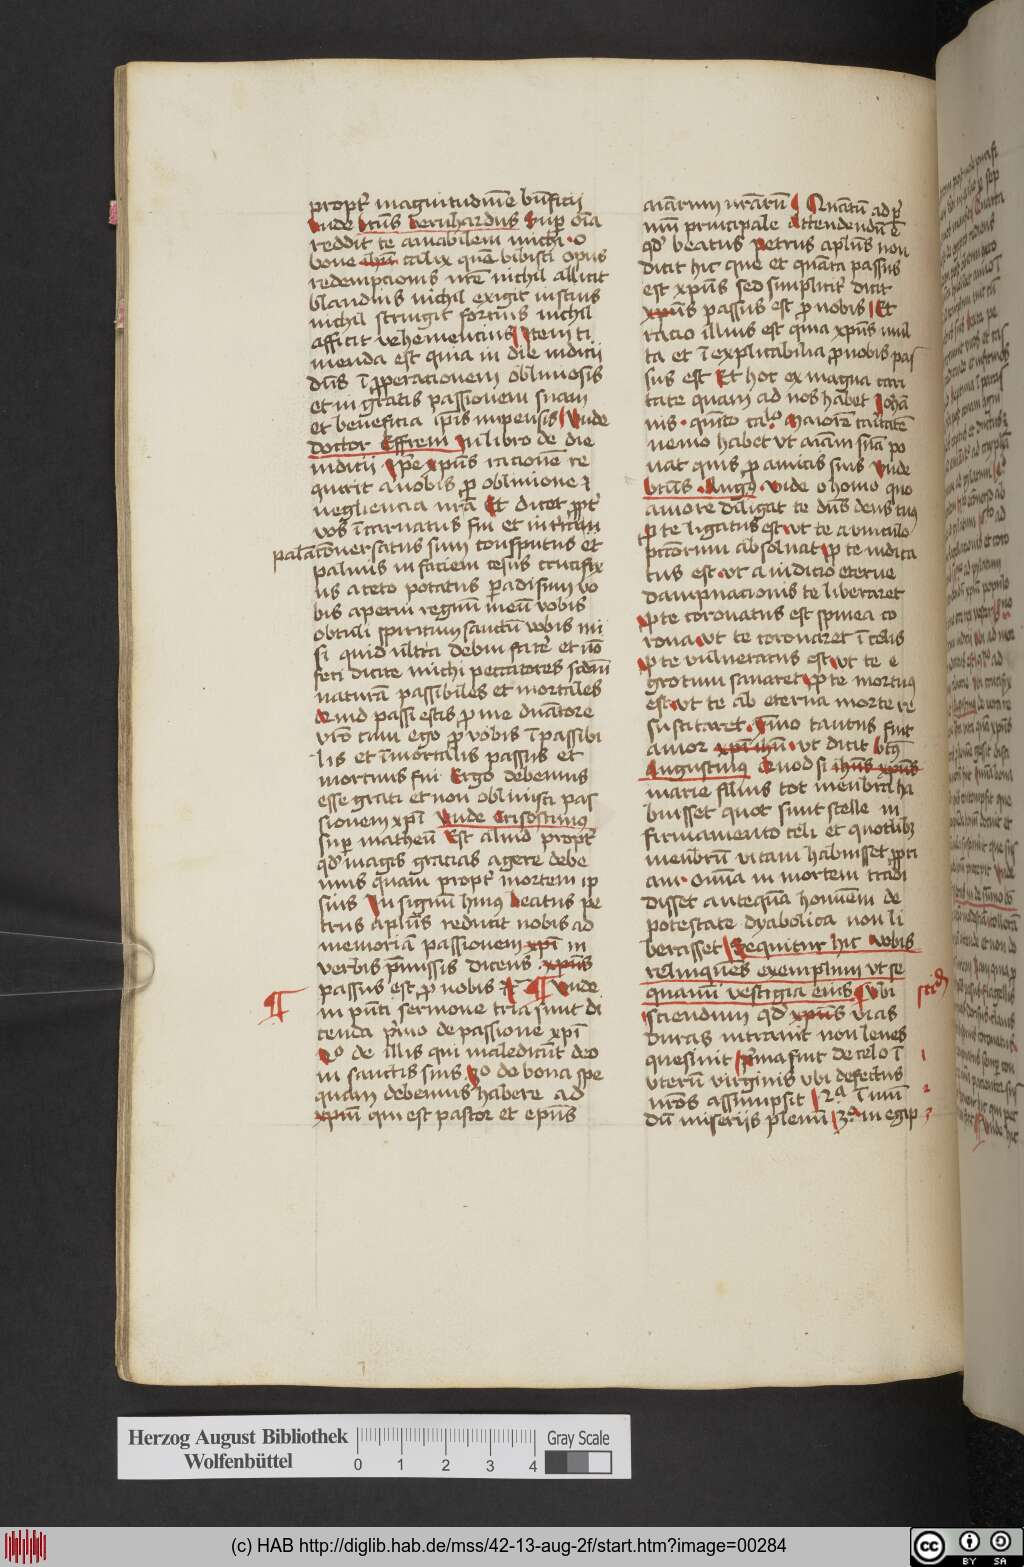 propt͛ magnitudinē bn̄ficii
Vnde btūs bernhardus sup̱ oīa
reddit te amabilem michi · o
bone ihū calix quē bibisti opus
redemptionis nr̄e nichil allicit
blandius nichil exigit iustius
nichil stringit fortius nichil
afficit vehementius Item ti
menda est quia in die iudicii
dūs ī ꝓperacionem obliuiosis
et in gratis passionem suam
et beneficia ip̄is impensis Vnde
doctor Effrem in libro de die
iudicii · Ip̄e xp̄us racionē re
quirit a nobis ꝓ obliuione ⁊
negliencia nrā Et dicet ꝓpt͛
vos ī carnatus fui et in terram
palā conuersatus sum consputus et
palmis in faciem cesus crucifix
us aceto potatus paradisum vo
bis aperui regnū meū vobis
obtuli spiritum sanctū vobis mi
si quid ultra debui facē et nō
feci dicite michi peccatores scdm̄
naturā passibiles et mortales
quid passi estis ꝓ me creatore
vr̄o cum ego ꝓ vobis ī passibi
lis et ī mortalis passus et
mortuus fui Ergo debemus
esse grati et non obliuisci pas
sionem xp̄i Vnde Crisostimus
sup̱ matheū Est aliud propt͛
qd̓ magis gracias agere debe
mus quam propt͛ mortem ip̄
sius In signum huius beatus pe
trus aplūs reducit nobis ad
memoriā passionem xp̄i in
verbis p̄missis dicens · xp̄us
passus est ꝓ nobis ⁊c̄ ¶ Vnde
in pn̄ti sermone tria sunt di
cenda p͛mo de passione xp̄i
2º de illis qui maledicūt deo
in sanctis suis 3º de bona spe
quam debemus habere ad
xp̄um qui est pastor et ep̄us
aīarum nr̄arū Quātū ad p͛
mū principale Attendendū ē
qd̓ beatus Petrus aplūs non
dicit hic que et quāta passus
est xp̄us sed simplicit͛ dicit
xp̄us passus est ꝓ nobis Et
racio illius est quia xp̄us mul
ta et ī explicabilia ꝓ nobis pas
sus est Et hoc ex magna cari
tate quam ad nos habet Johā
nis · quīto caº maiorē caritatē
nemo habet vt aīam suā po
nat quis ꝓ amicis suis Vnde
btūs · Augꝰ · vide o homo quo
amore diligat te dn̄s deus tuꝰ
ꝓ te ligatus est vt te a vinculo
pccōrum absoluat ꝓ te iudica
tus est · vt a iudicio eterne
dampnacionis te liberaret
ꝓ te coronatus est spinea co
rona vt te coronaret ī celis
ꝓ te vulneratus est vt te e
grotum sanaret ꝓ te mortuꝰ
est vt te ab eterna morte re
suscitaret · Ymo tantus fuit
amor xp̄i ihū · vt dicit btꝰ
Augustinꝰ Quod si ihūs xp̄us
marie filius tot membra ha
buisset quot sunt stelle in
firmamento celi et quotlibꝫ
membrū vitam habuisset ꝓpri
am · omnia in mortem tradi
disset antequā hominem de
potestate dyabolica non li
berasset Sequitur hic vobis
relinquēs exemplum vt se
quamī vestigia eius Vbi
sciendum qd̓ xp̄us vias
duras intrauit non lenes
quesiuit p͛ma fuit de celo ī
vterū virginis vbi defectus
nr̄os assumpsit 2ᵃ ī mū
dū miseriis plenū 3ᵃ in egip
Herzog August Bibliothek
Wolfenbüttel
0 1 2 3 4
Gray Scale
(c) HAB http://diglib.hab.de/mss/42-13-aug-2f/start.htm?image=00284
cc BY SA